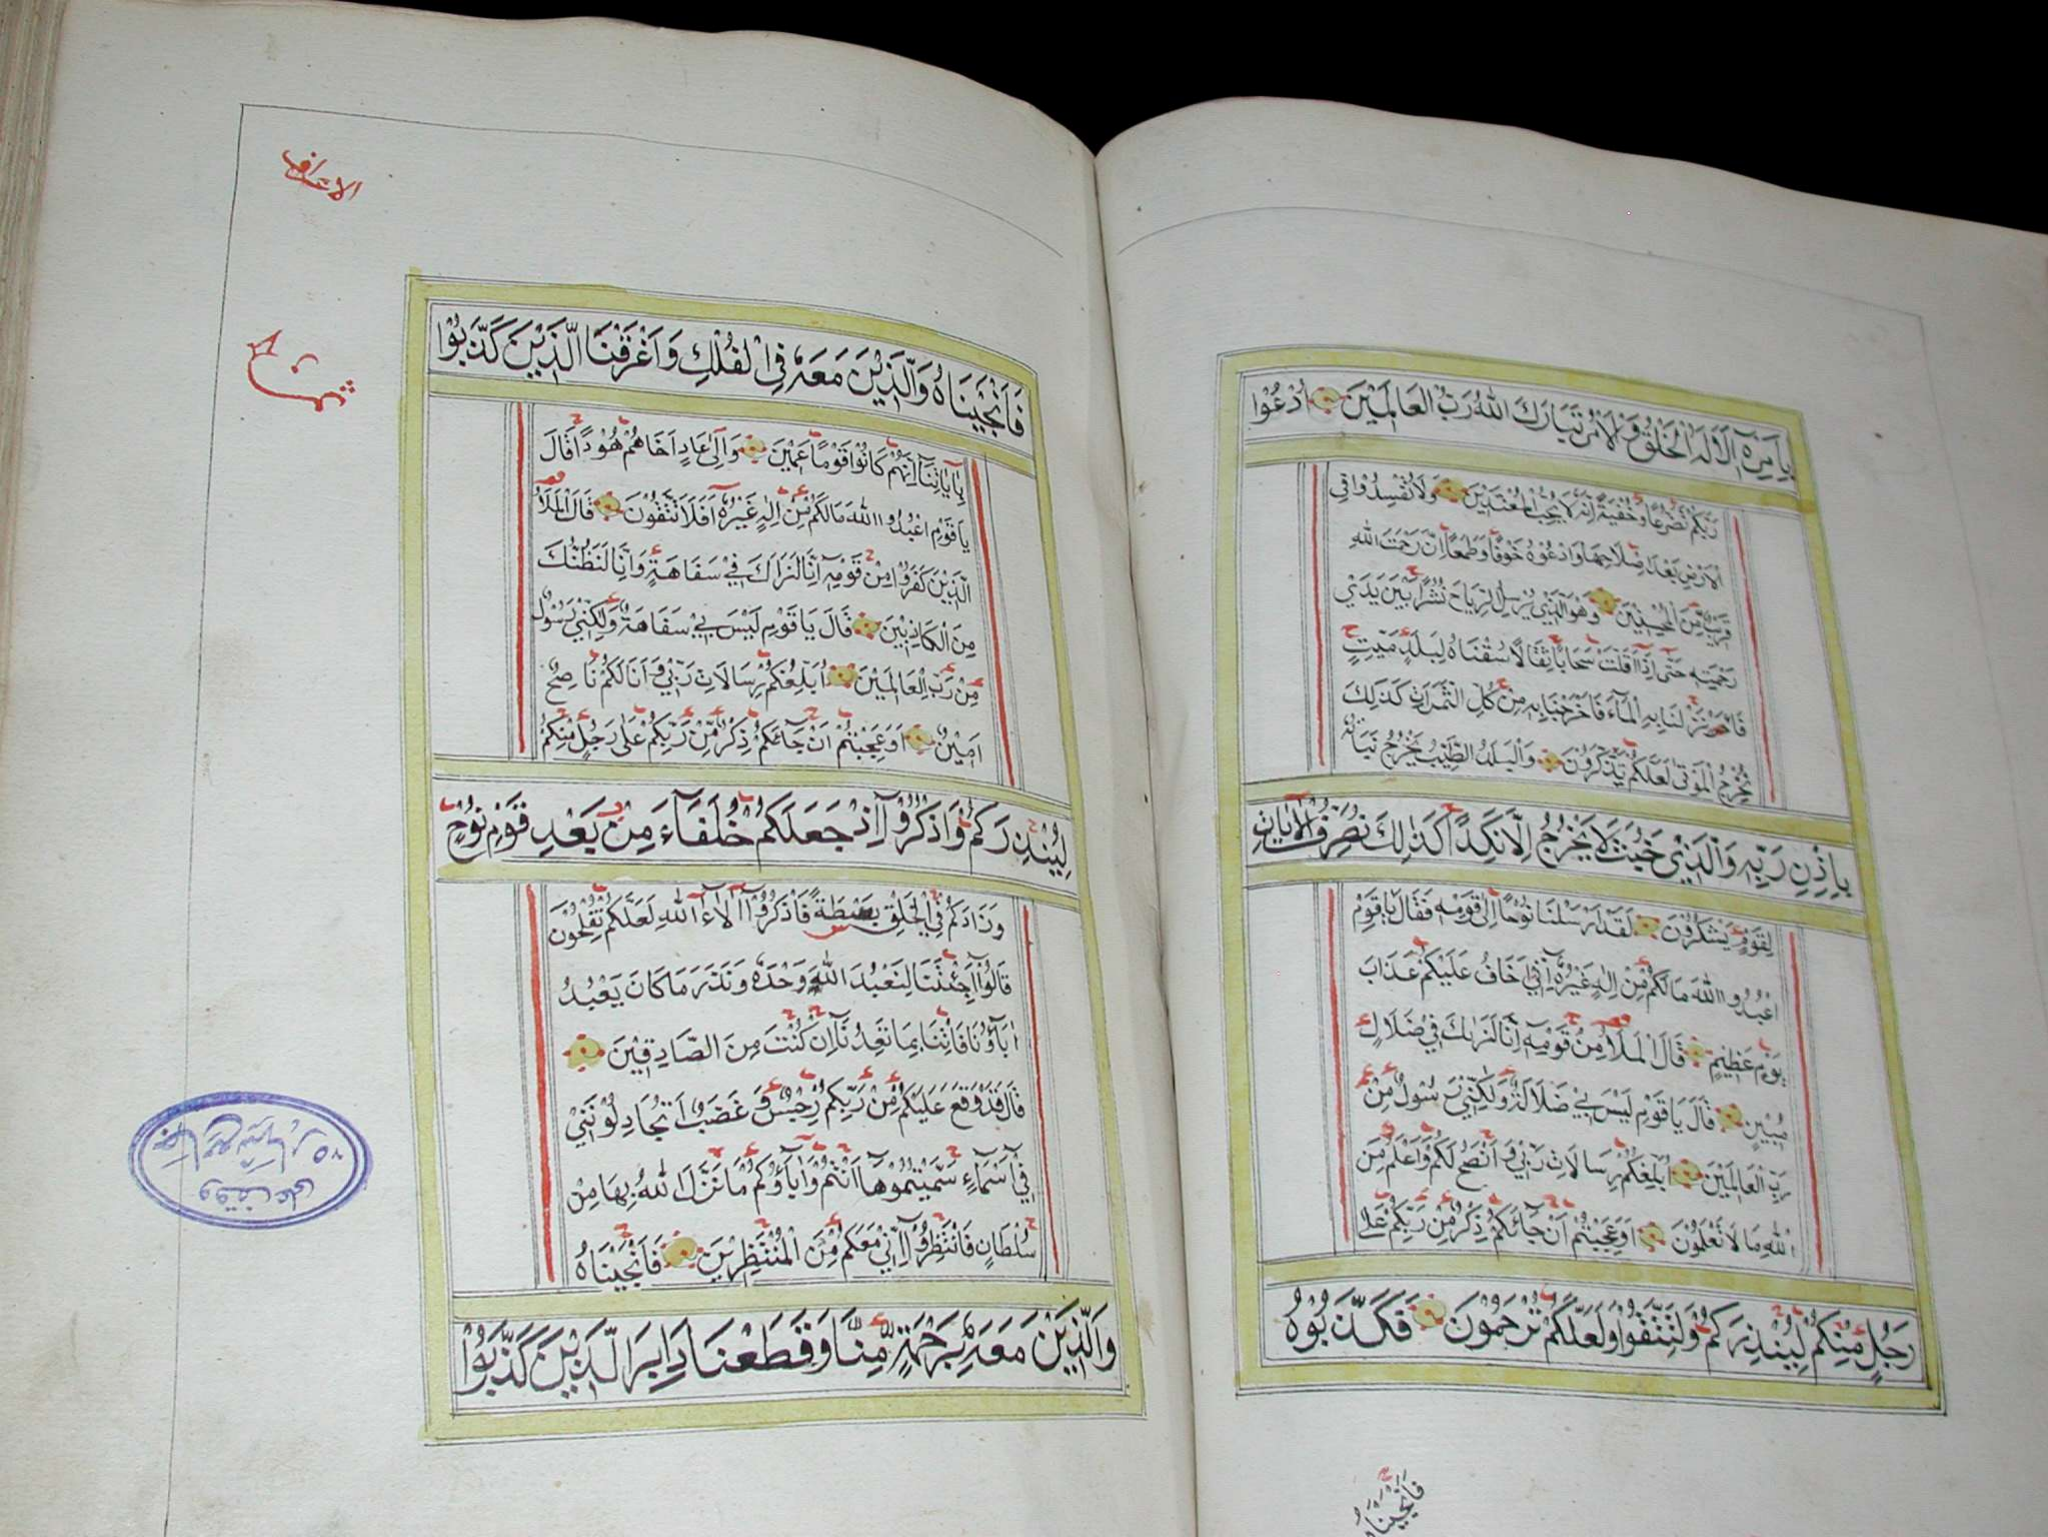 بِاَمْرِهٖ اَلَا لَهُ الْخَلْقُ وَالْاَمْرُ تَبَارَكَ اللّٰهُ رَبُّ الْعَالَمِيْنَ اُدْعُوْا
رَبَّكُمْ تَضَرُّعًا وَخُفْيَةً اِنَّهٗ لَا يُحِبُّ الْمُعْتَدِيْنَ وَلَا تُفْسِدُوْا فِى
الْاَرْضِ بَعْدَ اِصْلَاحِهَا وَادْعُوْهُ خَوْفًا وَطَمَعًا اِنَّ رَحْمَتَ اللّٰهِ
قَرِيْبٌ مِّنَ الْمُحْسِنِيْنَ وَهُوَ الَّذِيْ يُرْسِلُ الرِّيَاحَ نُشْرًا بَيْنَ يَدَيْ
رَحْمَتِهٖ حَتّٰى اِذَا اَقَلَّتْ سَحَابًا ثِقَالًا سُقْنَاهُ لِبَلَدٍ مَيِّتٍ
فَاَنْزَلْنَا بِهِ الْمَآءَ فَاَخْرَجْنَا بِهٖ مِنْ كُلِّ الثَّمَرَاتِ كَذٰلِكَ
نُخْرِجُ الْمَوْتٰى لَعَلَّكُمْ تَذَكَّرُوْنَ وَالْبَلَدُ الطَّيِّبُ يَخْرُجُ نَبَاتُهٗ
بِاِذْنِ رَبِّهٖ وَالَّذِيْ خَبُثَ لَا يَخْرُجُ اِلَّا نَكِدًا كَذٰلِكَ نُصَرِّفُ الْاٰيَاتِ
لِقَوْمٍ يَّشْكُرُوْنَ لَقَدْ اَرْسَلْنَا نُوْحًا اِلٰى قَوْمِهٖ فَقَالَ يَا قَوْمِ
اعْبُدُوا اللّٰهَ مَا لَكُمْ مِنْ اِلٰهٍ غَيْرُهٗ اِنِّيْ اَخَافُ عَلَيْكُمْ عَذَابَ
يَوْمٍ عَظِيْمٍ قَالَ الْمَلَاُ مِنْ قَوْمِهٖ اِنَّا لَنَرٰىكَ فِيْ ضَلَالٍ
مُبِيْنٍ قَالَ يَا قَوْمِ لَيْسَ بِيْ ضَلَالَةٌ وَلٰكِنِّيْ رَسُوْلٌ مِنْ
رَبِّ الْعَالَمِيْنَ اُبَلِّغُكُمْ رِسَالَاتِ رَبِّيْ وَاَنْصَحُ لَكُمْ وَاَعْلَمُ مِنَ
اللّٰهِ مَا لَا تَعْلَمُوْنَ اَوَعَجِبْتُمْ اَنْ جَآئَكُمْ ذِكْرٌ مِّنْ رَبِّكُمْ عَلٰى
رَجُلٍ مِنْكُمْ لِيُنْذِرَكُمْ وَلِتَتَّقُوْا وَلَعَلَّكُمْ تُرْحَمُوْنَ فَكَذَّبُوْهُ
فَاَنْجَيْنَاهُ
الاعراف
فَاَنْجَيْنَاهُ وَالَّذِيْنَ مَعَهٗ فِي الْفُلْكِ وَاَغْرَقْنَا الَّذِيْنَ كَذَّبُوْا
بِاٰيَاتِنَآ اِنَّهُمْ كَانُوْا قَوْمًا عَمِيْنَ وَاِلٰى عَادٍ اَخَاهُمْ هُوْدًا قَالَ
يَا قَوْمِ اعْبُدُوا اللّٰهَ مَا لَكُمْ مِّنْ اِلٰهٍ غَيْرُهٗ اَفَلَا تَتَّقُوْنَ قَالَ الْمَلَاُ
الَّذِيْنَ كَفَرُوْا مِنْ قَوْمِهٖ اِنَّا لَنَرَاكَ فِيْ سَفَاهَةٍ وَاِنَّا لَنَظُنُّكَ
مِنَ الْكَاذِبِيْنَ قَالَ يَا قَوْمِ لَيْسَ بِيْ سَفَاهَةٌ وَلٰكِنِّيْ رَسُوْلٌ
مِنْ رَّبِّ الْعَالَمِيْنَ اُبَلِّغُكُمْ رِسَالَاتِ رَبِّيْ وَاَنَا لَكُمْ نَاصِحٌ
اَمِيْنٌ اَوَعَجِبْتُمْ اَنْ جَآئَكُمْ ذِكْرٌ مِّنْ رَّبِّكُمْ عَلٰى رَجُلٍ مِنْكُمْ
لِيُنْذِرَكُمْ وَاذْكُرُوْٓا اِذْ جَعَلَكُمْ خُلَفَآءَ مِنْ بَعْدِ قَوْمِ نُوْحٍ
وَزَادَكُمْ فِي الْخَلْقِ بَصْطَةً فَاذْكُرُوْٓا اٰلَآءَ اللّٰهِ لَعَلَّكُمْ تُفْلِحُوْنَ
قَالُوْٓا اَجِئْتَنَا لِنَعْبُدَ اللّٰهَ وَحْدَهٗ وَنَذَرَ مَا كَانَ يَعْبُدُ
اٰبَآؤُنَا فَاْتِنَا بِمَا تَعِدُنَآ اِنْ كُنْتَ مِنَ الصَّادِقِيْنَ
قَالَ قَدْ وَقَعَ عَلَيْكُمْ مِّنْ رَّبِّكُمْ رِجْسٌ وَغَضَبٌ اَتُجَادِلُوْنَنِيْ
فِيْٓ اَسْمَآءٍ سَمَّيْتُمُوْهَآ اَنْتُمْ وَاٰبَآؤُكُمْ مَا نَزَّلَ اللّٰهُ بِهَا مِنْ
سُلْطَانٍ فَانْتَظِرُوْٓا اِنِّيْ مَعَكُمْ مِّنَ الْمُنْتَظِرِيْنَ فَاَنْجَيْنَاهُ
وَالَّذِيْنَ مَعَهٗ بِرَحْمَةٍ مِّنَّا وَقَطَعْنَا دَابِرَ الَّذِيْنَ كَذَّبُوْا